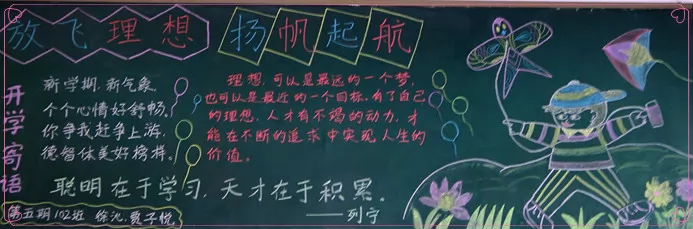 放飞理想 扬帆起航
开学寄语
新学期,新气象。
个个心情好舒畅。
你争我赶争上游,
德智体美好榜样。
理想,可以是最远的一个梦,
也可以是最近的一个目标,有了自己
的理想,人才有不竭的动力,才
能在不断的追求中实现人生的
价值。
聪明在于学习,天才在于积累。
——列宁
第五期 102班 徐 贾子悦